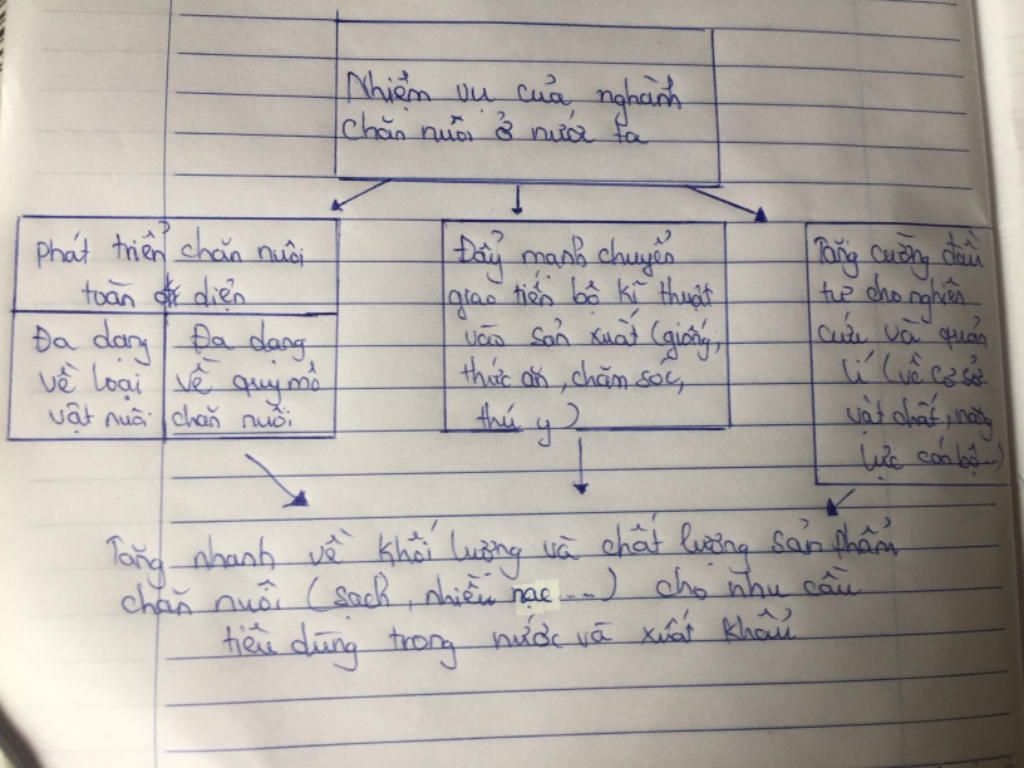 Nhiệm vụ của nghành
chăn nuôi ở nước ta
phát triển chăn nuôi
toàn diện
Đa dạng
về loại
vật nuôi
Đa dạng
về quy mô
chăn nuôi
Đẩy mạnh chuyển
giao tiến bộ kĩ thuật
vào sản xuất (giống,
thức ăn, chăm sóc,
thú y)
Tăng cường đầu
tư cho nghiên
cứu và quản
lí (về cơ sở
vật chất, năng
lực cán bộ...)
Tăng nhanh về khối lượng và chất lượng sản phẩm
chăn nuôi (sạch, nhiều nạc ...) cho nhu cầu
tiêu dùng trong nước và xuất khẩu